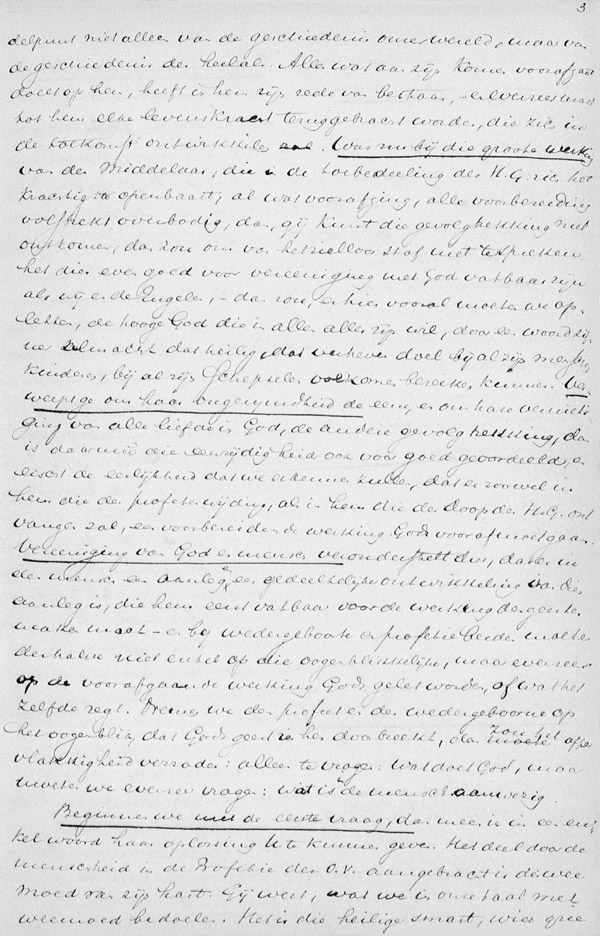 3
delpunt niet alleen van de geschiedenis onzer wereld, maar van
de geschiedenis des heelals. Alles wat aan zijn komen voorafgaat
doelt op hem, heeft in hem zijn rede van bestaan, - en evenzeer moet
tot hem elke levenskracht teruggebracht worden, die zich in
de toekomst ontwikkelen zal. Was nu bij die groote werking
van den Middelaar, die in de toebedeeling des H.G. zich het
krachtigst openbaart, al wat voorafging, alle voorbereiding
volstrekt overbodig, dan, gij kunt die gevolgtrekking niet
ontkomen, dan zou om van het zielloos stof niet te spreken
het dier even goed voor vereeniging met God vatbaar zijn
als wij en de Engelen, - dan zou, en hier vooral moeten we op-
letten, de hooge God die in allen alles zijn wil, door een woord zij-
ner almacht dat heilig, dat verheven doel bij al zijn menschen
kinderen, bij al zijn Schepselen volkomen bereiken kunnen. Ver-
werpt ge om haar ongerijmdheid de eene, en om hare vernieti-
ging van alle liefde in God, de andere gevolgtrekking, dan
is daarmeê die eenzijdigheid ook voor goed geoordeeld, en
eischt de eerlijkheid dat we erkennen zullen, dat er zoowel in
hem die de profetenwijding, als in hem die den Doop des H.G. ont
vangen zal, een voorbereidende werking Gods vooraf moet gaan.
Vereeniging van God en mensch veronderstelt dus, dat er in
den mensch een aanleg, een gedeeltelijke ontwikkeling van dien
aanleg is, die hem eerst vatbaar voor de werking des geestes
maken moet - en bij wedergeboorte en profetie beide moet
derhalve niet enkel op die oogenblikkelijke, maar evenzeer
op de voorafgaande werking Gods gelet worden, of wat het
zelfde zegt. Nemen we den profeet en den wedergeboorne op
het oogenblik, dat Gods geest in hen doorbreekt, dan zou het opper
vlakkigheid verraden: alleen te vragen: wat doet God, maar
moeten we evenzeer vragen: wat is in de mensch aanwezig.
Beginnen we met de eerste vraag, dan meen ik in een en-
kel woord haar oplossing te kunnen geven. Het deel door de
menschheid in de Profetie des O.V. aangebracht is de wee
moed van zijn hart. Gij weet, wat we in onze taal met
weemoed bedoelen. Het is die heilige smart, wier gree